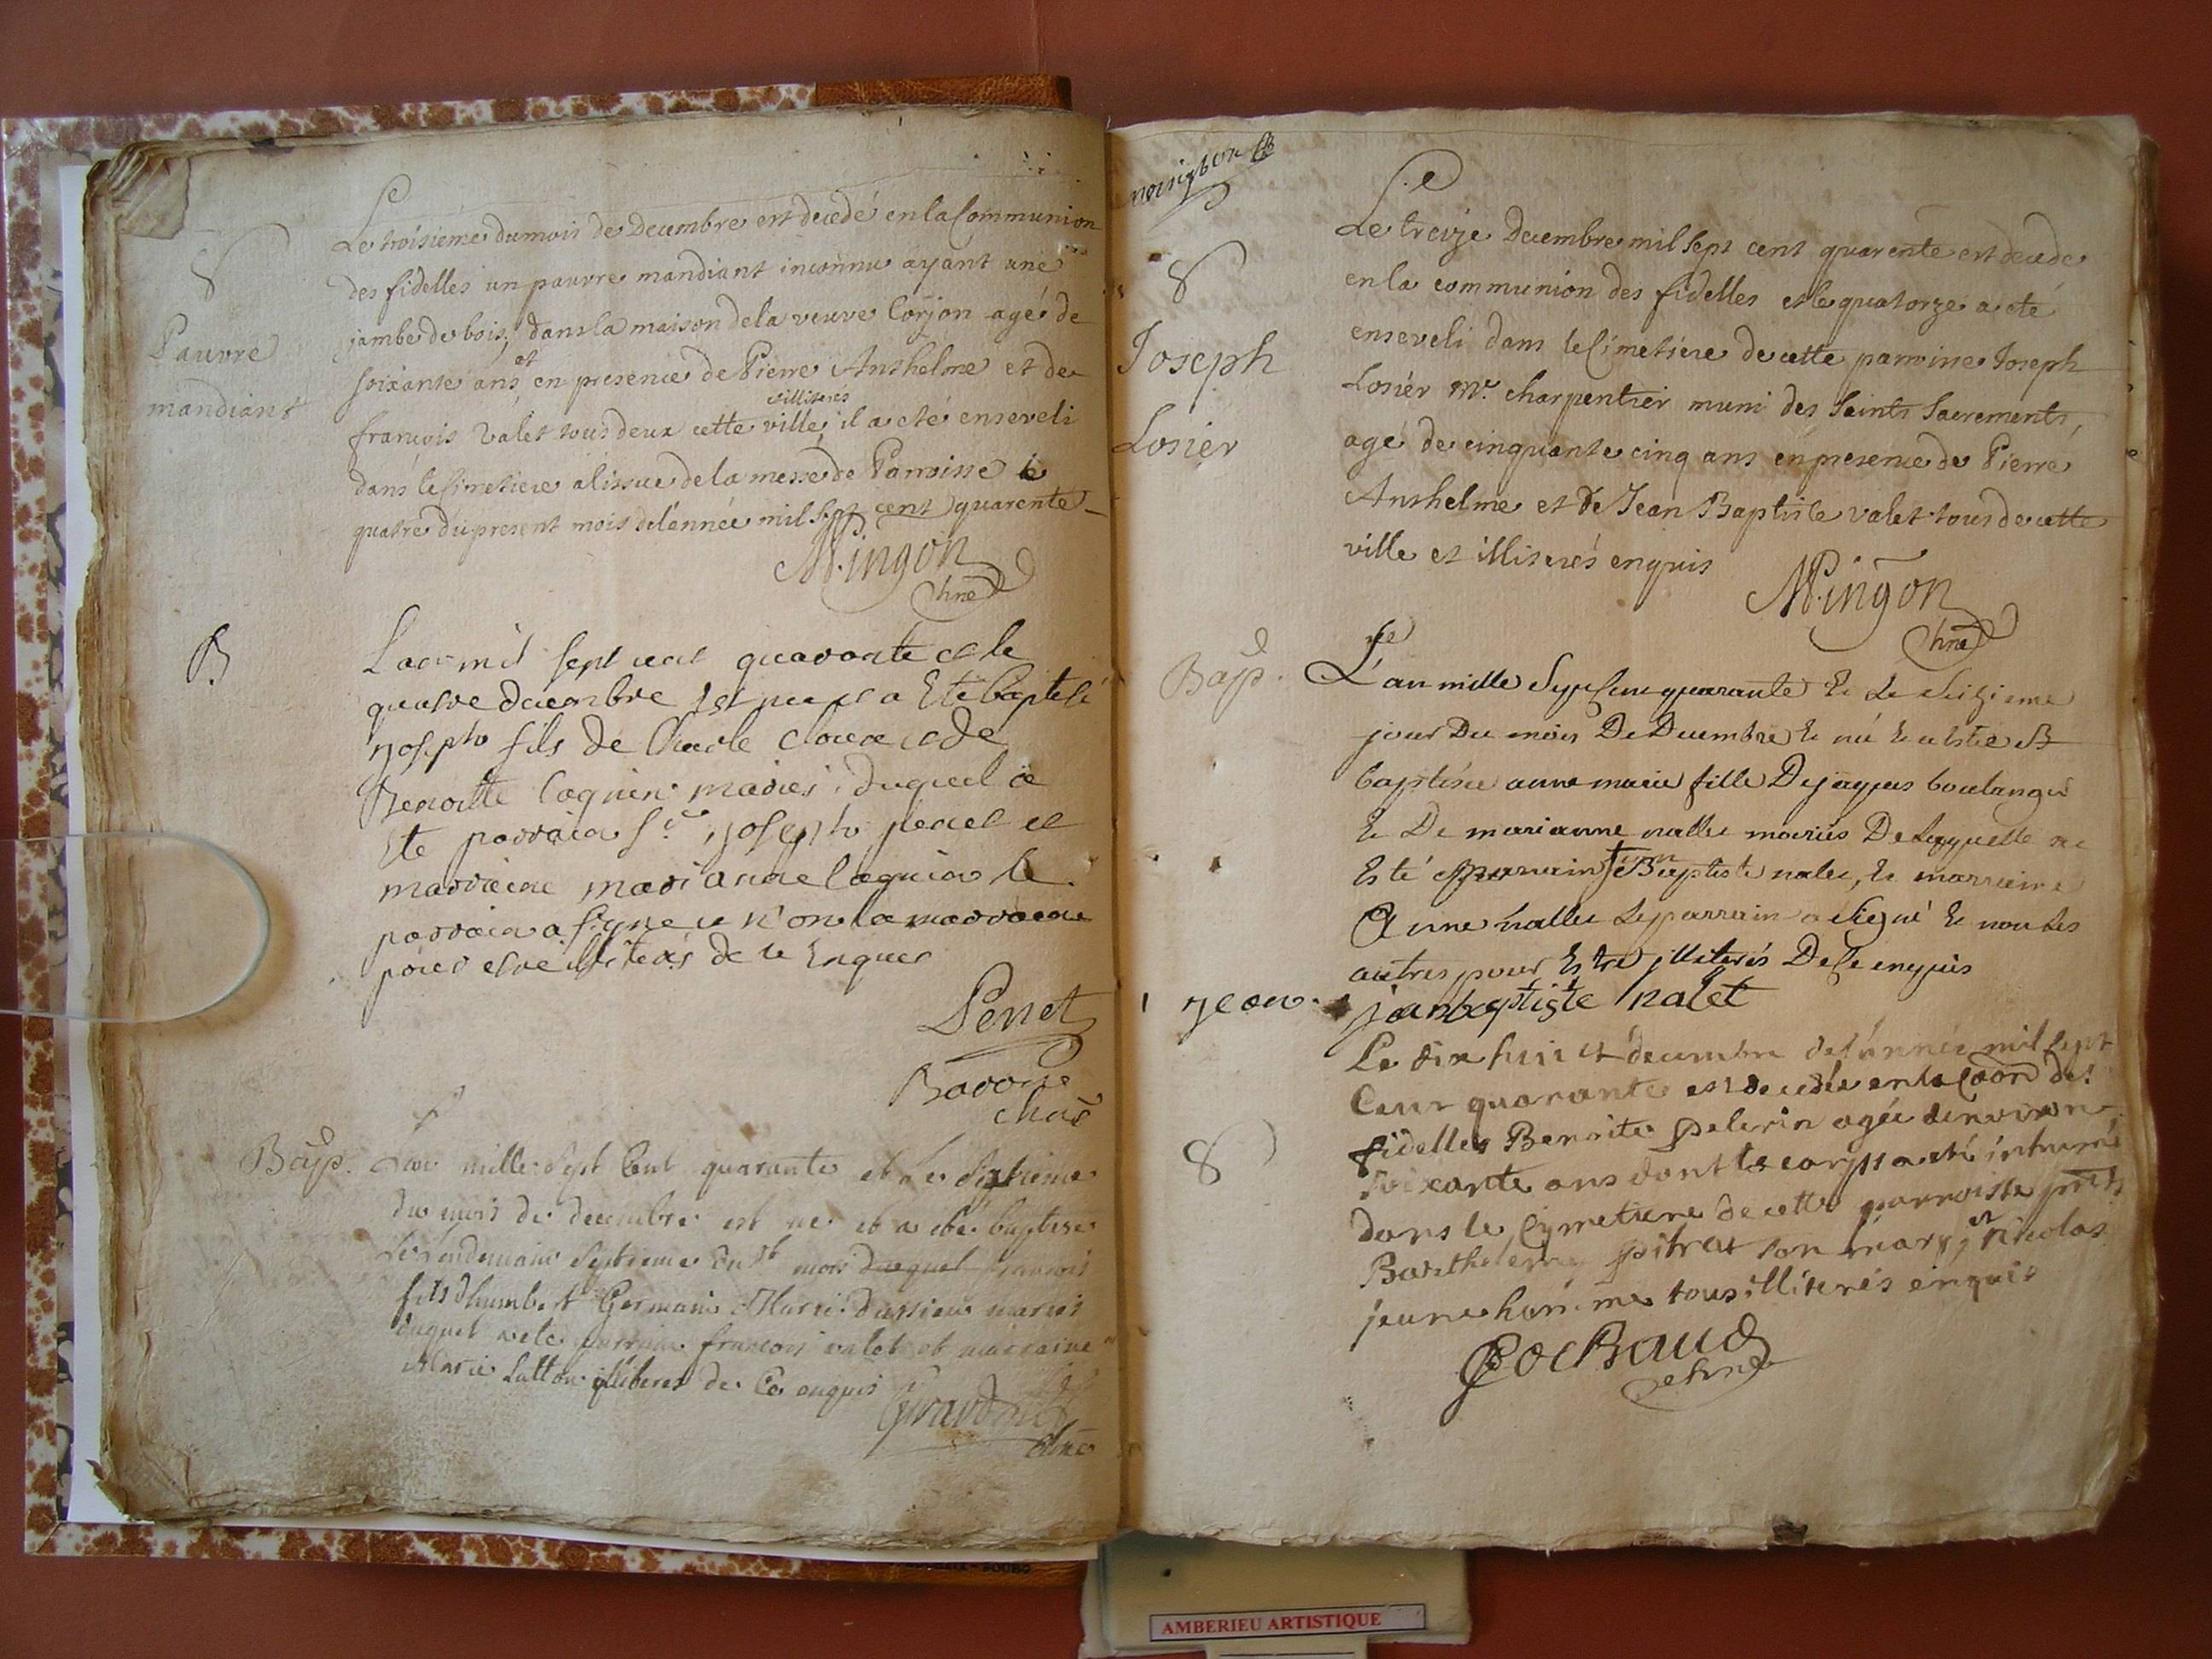 Pauvre
mandiant
Le troisieme du mois de Decembre est decedé en la Communion
des fidelles un pauvre mandiant inconnu ayant une
jambe de bois, dans la maison de la veuve Corjon agé de
soixante ans et en presence de Pierre Anthelme et de
francois valet tous deux cette ville illiterés il a eté enseveli
dans le Cimetiere a lissue de la messe de Parroisse le
quatre du present mois de l'année mil sept cent quarente
Mingon
B
L'an mil sept cent quarante et le
quatre decembre est ne et a Eté Baptisé
joseph fils de Charle et de
Benoitte Coquin mariés duquel a
Eté parrain Sr joseph penet et
marraine marianne Coquin le
parrain a signe et non la marraine
pour estre illiterés de ce Enquis
Penet
Bap.
L'an mille Sept Cent quarante et le sixieme
du mois de decembre est ne et a eté baptise
le lendemain septieme du dt mois duquel francois
fils d'humbert Germain et Marie mariés
duquel a eté parrain francois valet et marraine
Marie illiteres de Ce enquis
Joseph
Losier
Le treize Decembre mil sept cent quarente est decedé
en la communion des fidelles et le quatorze a eté
enseveli dans le Cimetiere de cette parroisse Joseph
Losier Mr. charpentier muni des Saints Sacrements,
agé de cinquante cinq ans en presence de Pierre
Anthelme et de Jean Baptiste valet tous de cette
ville et illiterés enquis
Mingon
Bap.
L'an mille Sept Cent quarante Et Le Seizieme
jour Du mois De Decembre Et né Et a Esté
baptisée anne marie fille De jaques boulanger
Et De marianne nallet mariés De Laquelle a
Esté parrain Jean Baptiste nalet, Et marraine
Anne nallet Le parrain a signé Et non Les
autres pour Estre illiterés De Ce enquis
jean
jan baptiste nalet
Le dix huit decembre de l'année mil sept
Cent quarante est decedée en la Coon des
fidelles Benoite pelerin agée denviron
soixante ans dont le corps a eté inhumé
dans le Cymetiere de cette parroisse pnts
Barthelemy pitrat son mary, et Nicolas
jeune homme tous illiterés enquis
AMBERIEU ARTISTIQUE